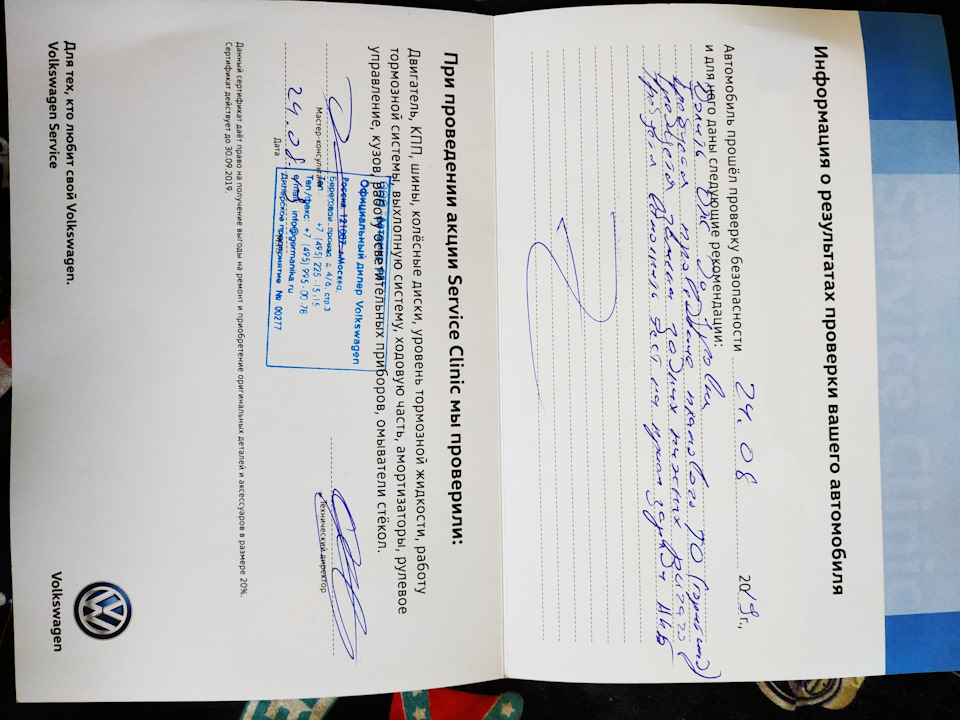 Service Clinic
Информация о результатах проверки вашего автомобиля
Автомобиль прошёл проверку безопасности 24.08 2019 г.,
и для него даны следующие рекомендации:
Долить
Требуется проведение планового ТО
Требуется замена задних нижних
При проведении акции Service Clinic мы проверили:
Двигатель, КПП, шины, колёсные диски, уровень тормозной жидкости, работу
тормозной системы, выхлопную систему, ходовую часть, амортизаторы, рулевое
управление, кузов, работу осветительных приборов, омыватели стёкол.
Официальный дилер Volkswagen
Россия, 121087, г.Москва,
Береговой проезд, д. 4/6, стр.3
Тел.: +7 (495) 225-15-15
Тел/факс: +7 (495) 995-00-78
e-mail: info@germanika.ru
Дилерское предприятие № 00277
Мастер-консультант
Технический директор
24.08.
Дата
Данный сертификат даёт право на получение выгоды на ремонт и приобретение оригинальных деталей и аксессуаров в размере 20%.
Сертификат действует до 30.09.2019.
Для тех, кто любит свой Volkswagen.
Volkswagen Service
Volkswagen